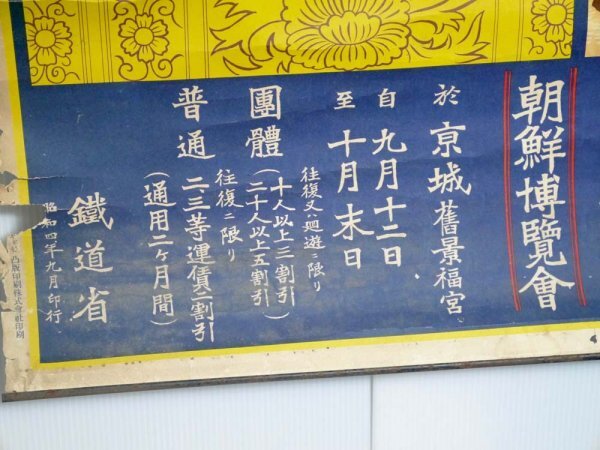 朝鮮博覽會
於京城舊景福宮
自九月十二日
至十月末日
團體
往復又ハ廻遊ニ限リ
十人以上三割引
二十人以上五割引
普通
往復ニ限リ
二、三等運賃二割引
(通用二ヶ月間)
鐵道省
昭和四年九月印行
凸版印刷株式會社印刷